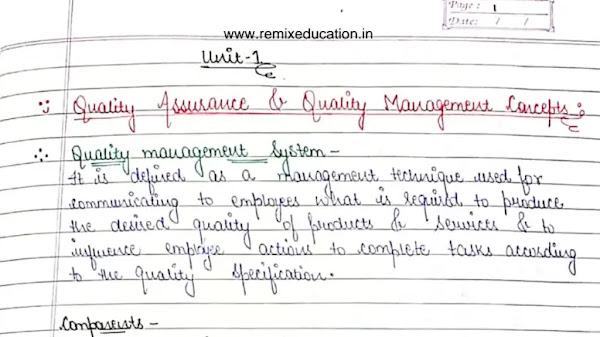 Page: 1
Date: / /
www.remixeducation.in
Unit-1
Quality Assurance & Quality Management Concepts :
Quality management System -
It is defined as a management technique used for
communicating to employees what is required to produce
the desired quality of products & services & to
influence employee actions to complete tasks according
to the quality specification.
Components -